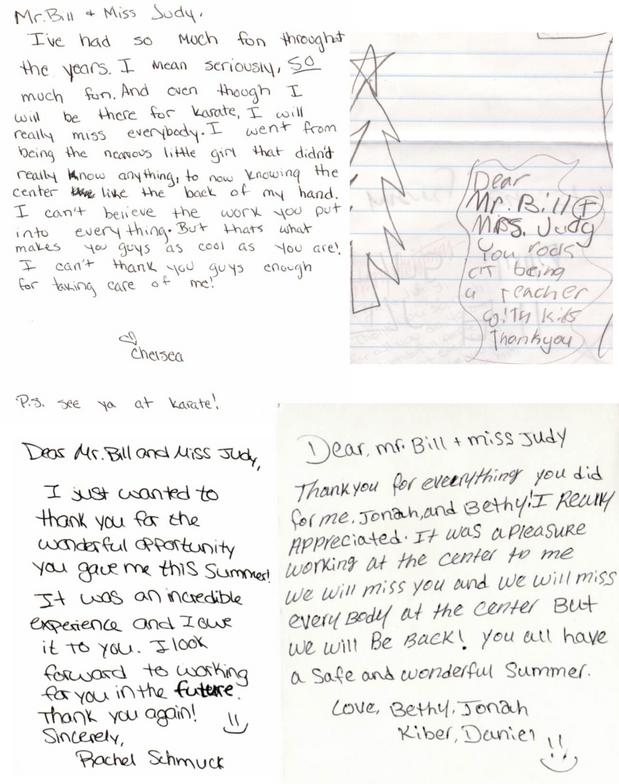 Mr. Bill + Miss Judy,
I've had so much fun throught
the years. I mean seriously, so
much fun. And even though I
will be there for karate, I will
really miss everybody. I went from
being the nearvous little girl that didn't
really know anything, to now knowing the
center like the back of my hand.
I can't believe the work you put
into everything. But thats what
makes you guys as cool as you are!
I can't thank you guys enough
for taking care of me!
Chelsea
P.S. see ya at karate!
Dear
Mr. Bill +
Mrs. Judy
You rock
at being
a teacher
with kits
Thankyou
Dear Mr. Bill and Miss Judy,
I just wanted to
thank you for the
wonderful opportunity
you gave me this summer!
It was an incredible
experience and I owe
it to you. I look
forward to working
for you in the future.
Thank you again!
Sincerely,
Rachel Schmuck
Dear, mr. Bill + miss Judy
Thankyou for everything you did
for me, Jonah, and Bethy! I Really
Appreciated. It was a pleasure
working at the center to me
we will miss you and we will miss
every Body at the center But
we will Be Back! you all have
a safe and wonderful summer.
Love, Bethy, Jonah
Kiber, Daniel